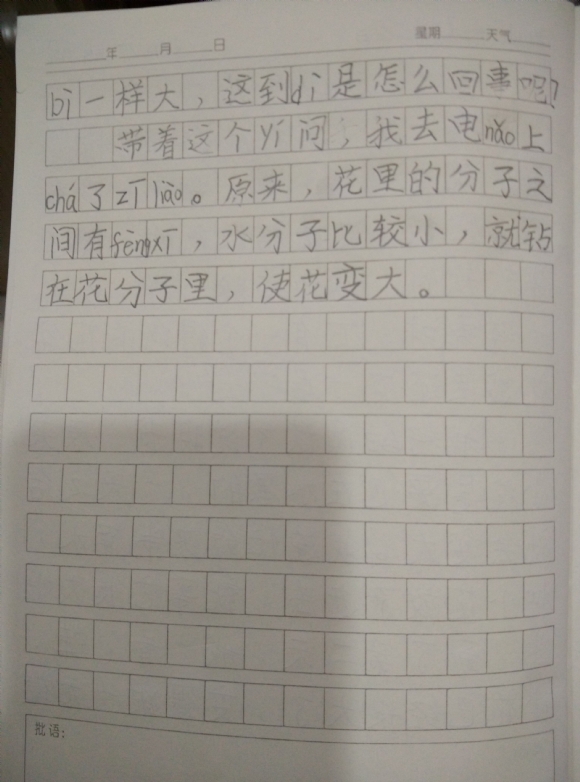 年 月 日 星期 天气
bí一样大，这到dǐ是怎么回事呢？
带着这个yí问，我去电nǎo上
chá了zī liào。原来，花里的分子之
间有fèngxī，水分子比较小，就钻
在花分子里，使花变大。
批语：